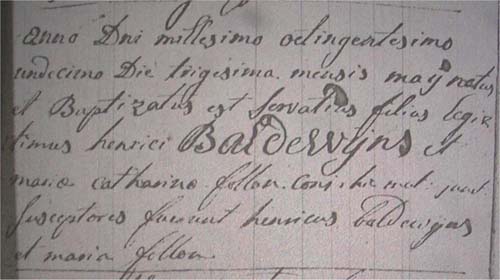 Anno Dni millesimo octingentesimo
undecimo Die trigesima mensis maÿ natus
et Baptizatus est Servatius filius legi
timus henrici Baldewÿns et
maria catharina follon
susceptores fuerunt henricus baldewijns
et maria follon